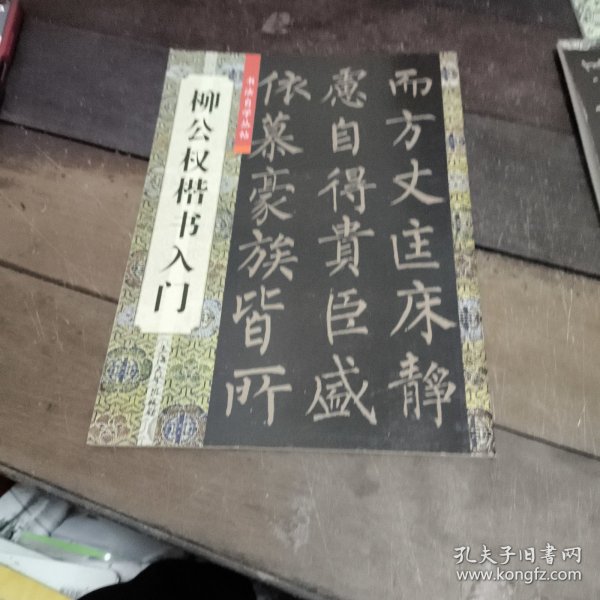 书法自学丛帖
柳公权楷书入门
而方丈匡床靜
慮自得貴臣盛
依慕豪族皆所
孔夫子旧书网
www.kongfz.com